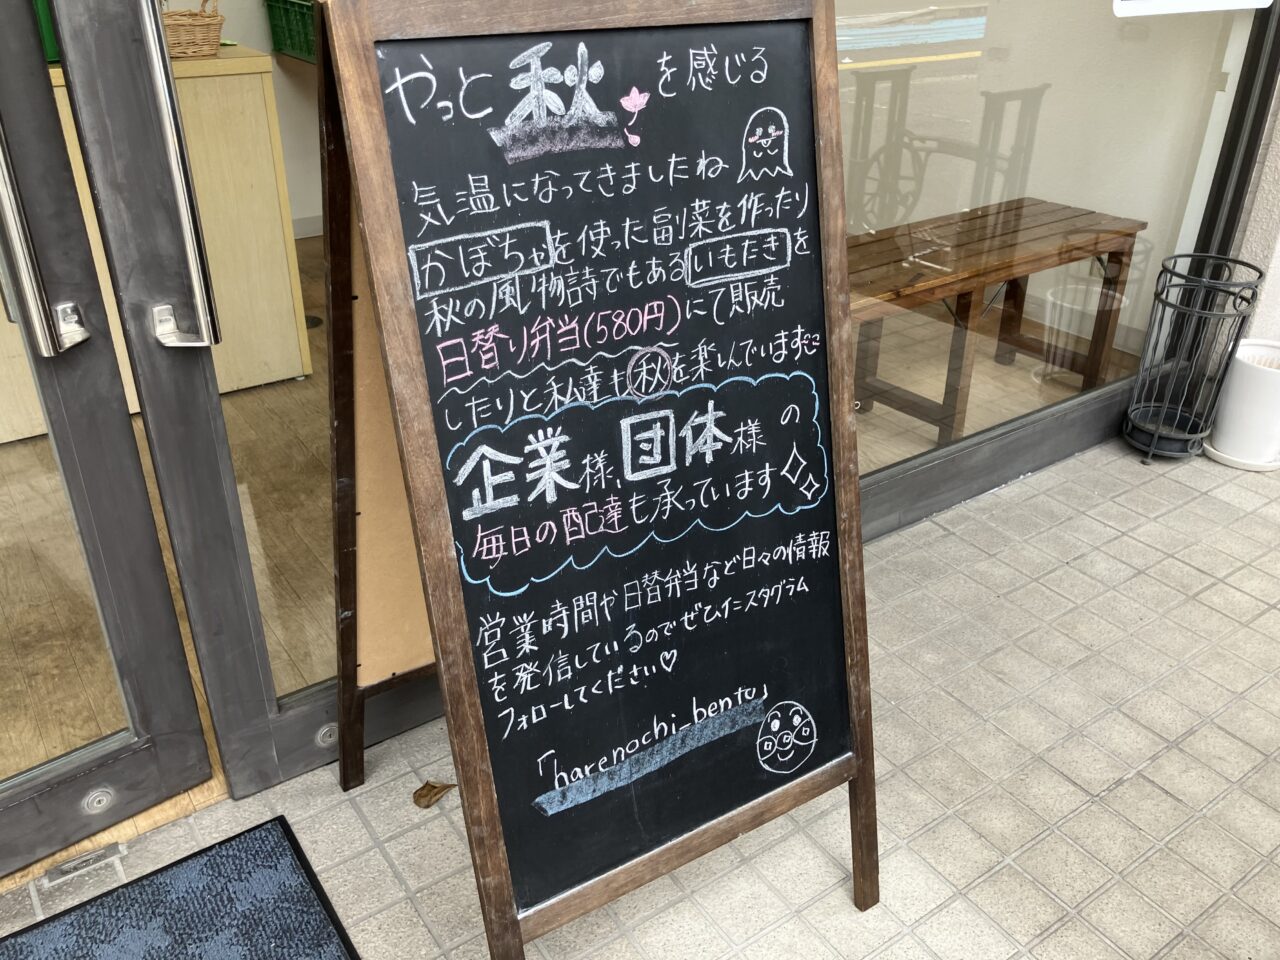 やっと秋を感じる
気温になってきましたね
かぼちゃを使った副菜を作ったり
秋の風物詩でもあるいもたきを
日替り弁当(580円)にて販売
したりと私達も秋を楽しんでいます
企業様、団体様の
毎日の配達も承っています
営業時間や日替弁当など日々の情報
を発信しているのでぜひインスタグラム
フォローしてください♡
「harenochi_bento」